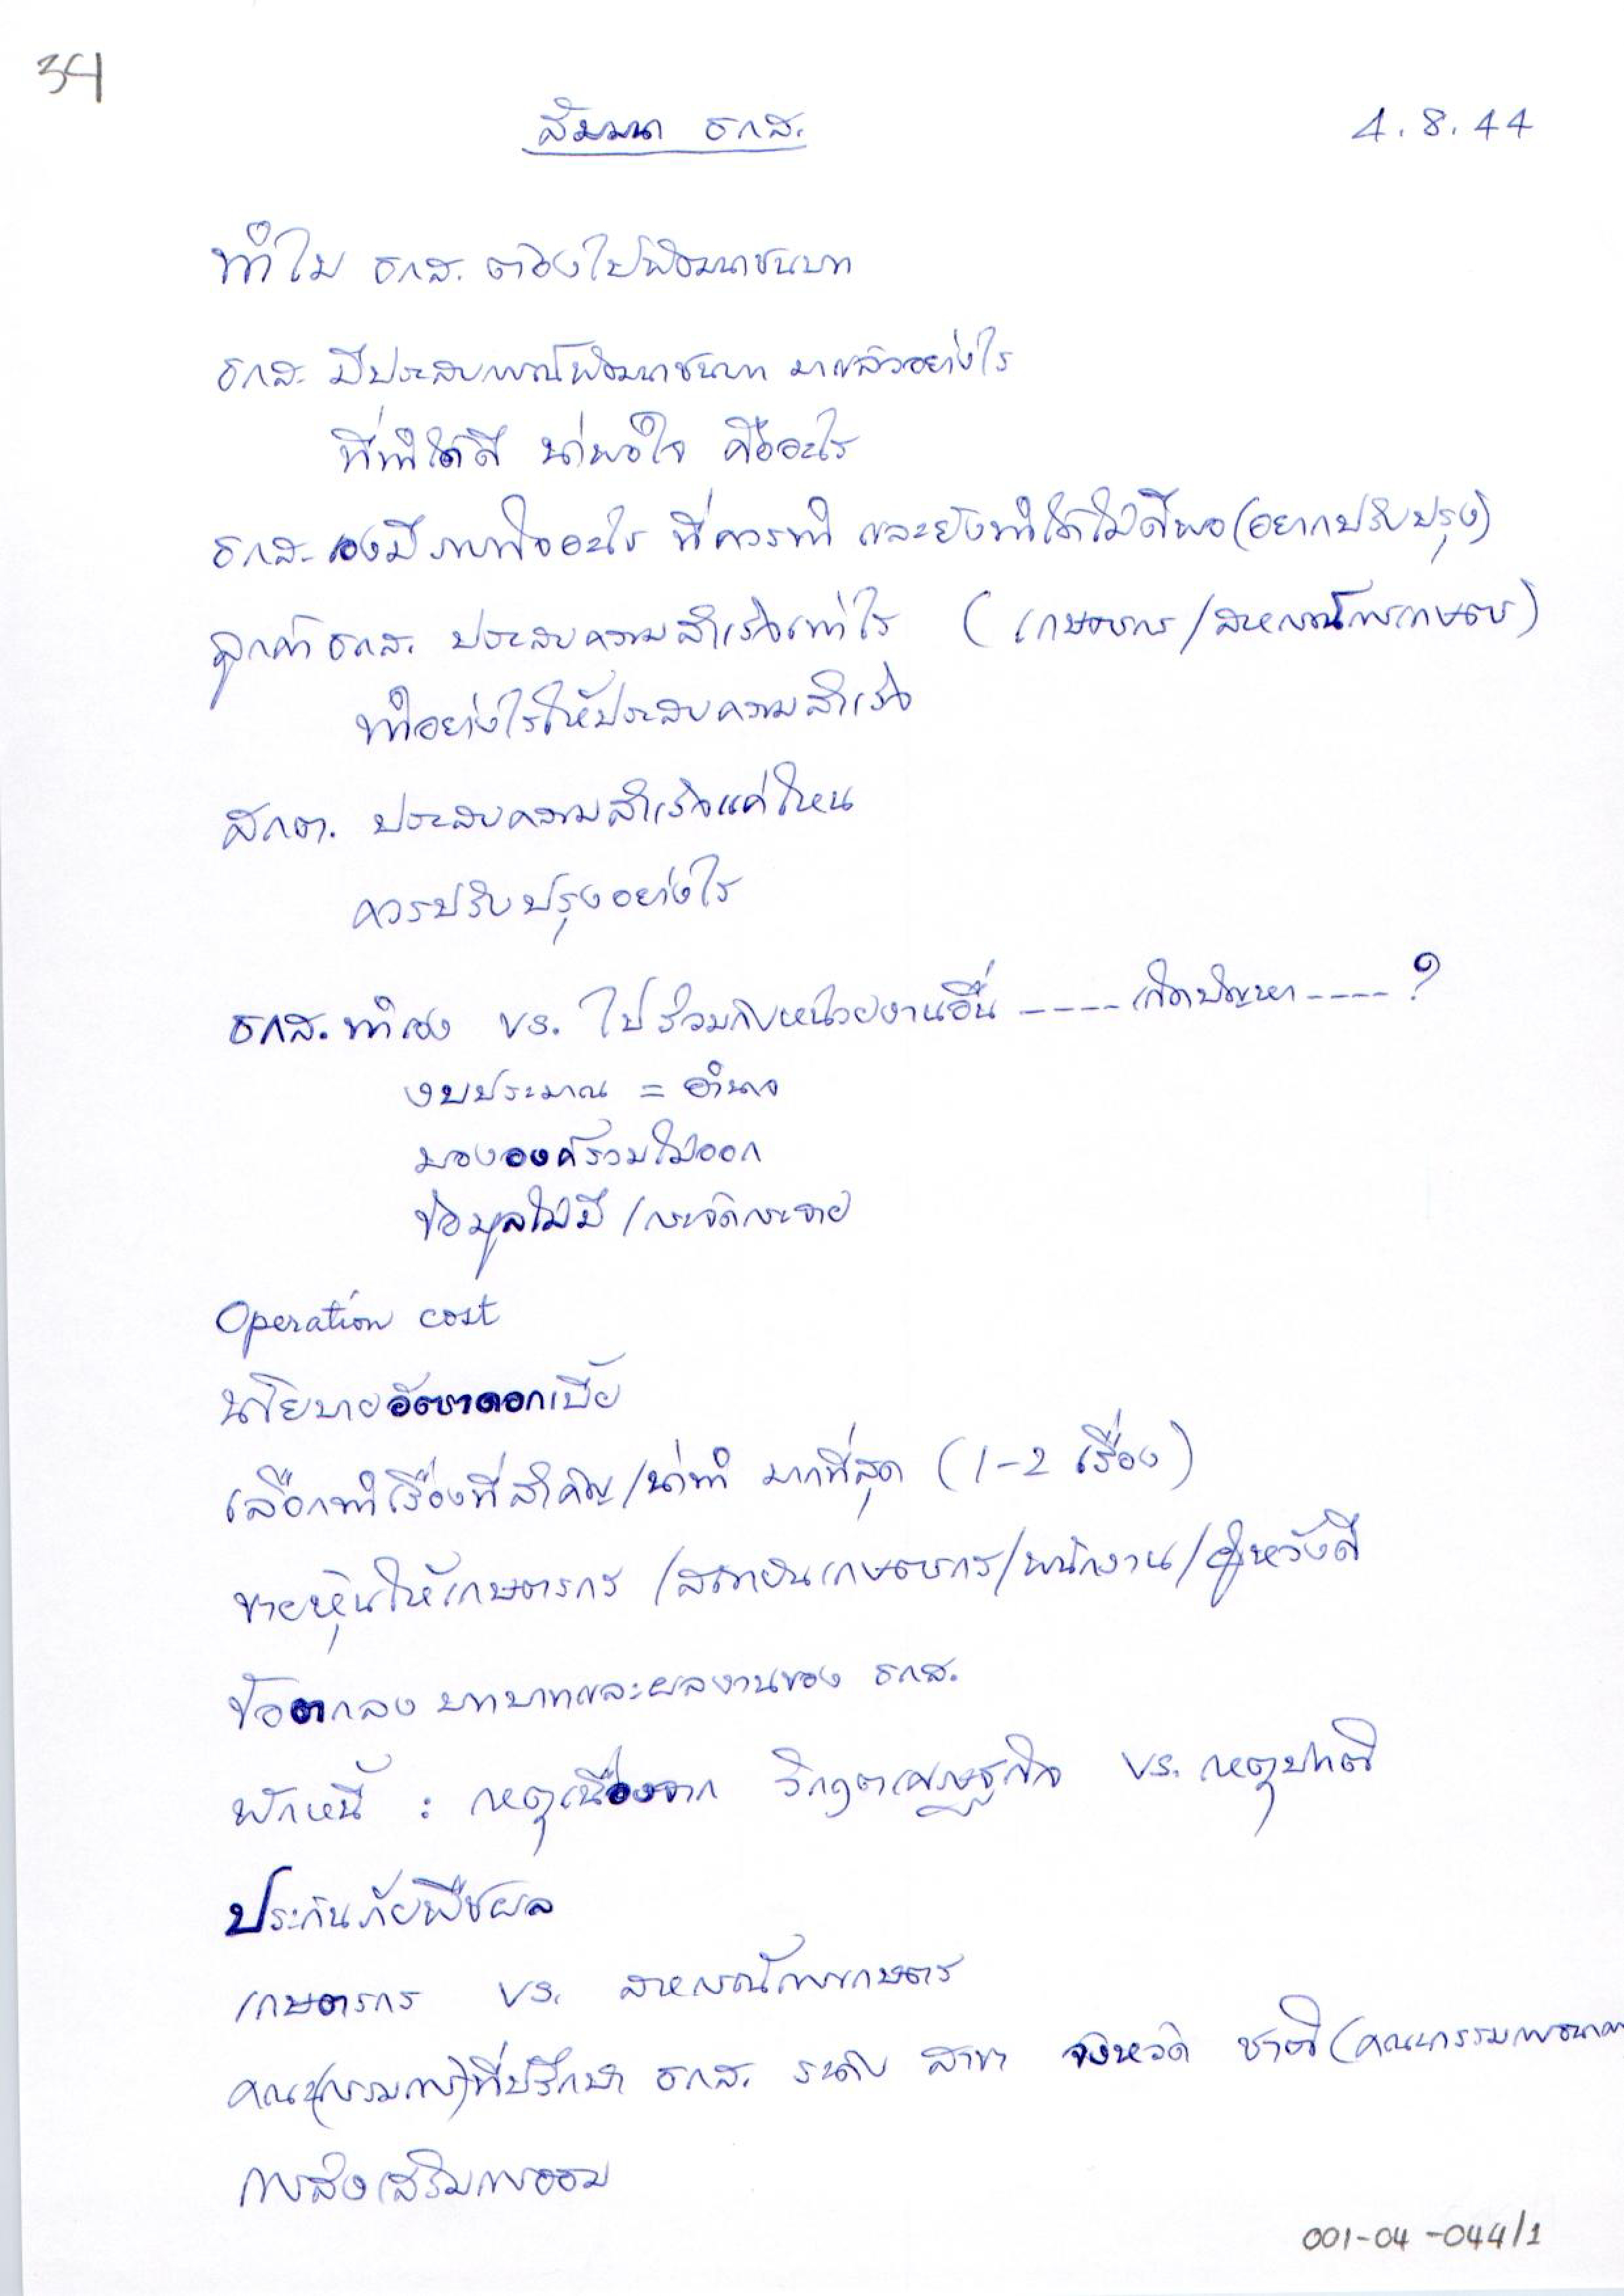 34
สัมมนา ธกส. 4.8.44
ทำไม ธกส. ต้องไปพัฒนาชนบท
ธกส. มีประสบการณ์พัฒนาชนบท มาแล้วอย่างไร
ที่ทำได้ดี น่าพอใจ คืออะไร
ธกส. เองมีภารกิจอะไร ที่ควรทำ และยังทำได้ไม่ดีพอ (อยากปรับปรุง)
ลูกค้า ธกส. ประสบความสำเร็จเท่าไร (เกษตรกร/สหกรณ์การเกษตร)
ทำอย่างไรให้ประสบความสำเร็จ
สกต. ประสบความสำเร็จแค่ไหน
ควรปรับปรุงอย่างไร
ธกส. ทำเอง vs. ไปร่วมกับหน่วยงานอื่น ---- เกิดปัญหา ---- ?
งบประมาณ = อำนาจ
มององค์รวมไม่ออก
ข้อมูลไม่มี/กระจัดกระจาย
Operation cost
นโยบายอัตราดอกเบี้ย
เลือกทำเรื่องที่สำคัญ/น่าทำ มากที่สุด (1-2 เรื่อง)
ขายหุ้นให้เกษตรกร/สถาบันเกษตรกร/พนักงาน/ผู้หวังดี
ข้อตกลง บทบาทและผลงานของ ธกส.
พักหนี้ : เหตุเนื่องจาก วิกฤตเศรษฐกิจ vs. เหตุปกติ
ประกันภัยพืชผล
เกษตรกร vs. สหกรณ์การเกษตร
คณะ(กรรมการ)ที่ปรึกษา ธกส. ระดับ สาขา จังหวัด ชาติ (คณะกรรมการธนาคาร
การส่งเสริมการออม
001-04-044/1